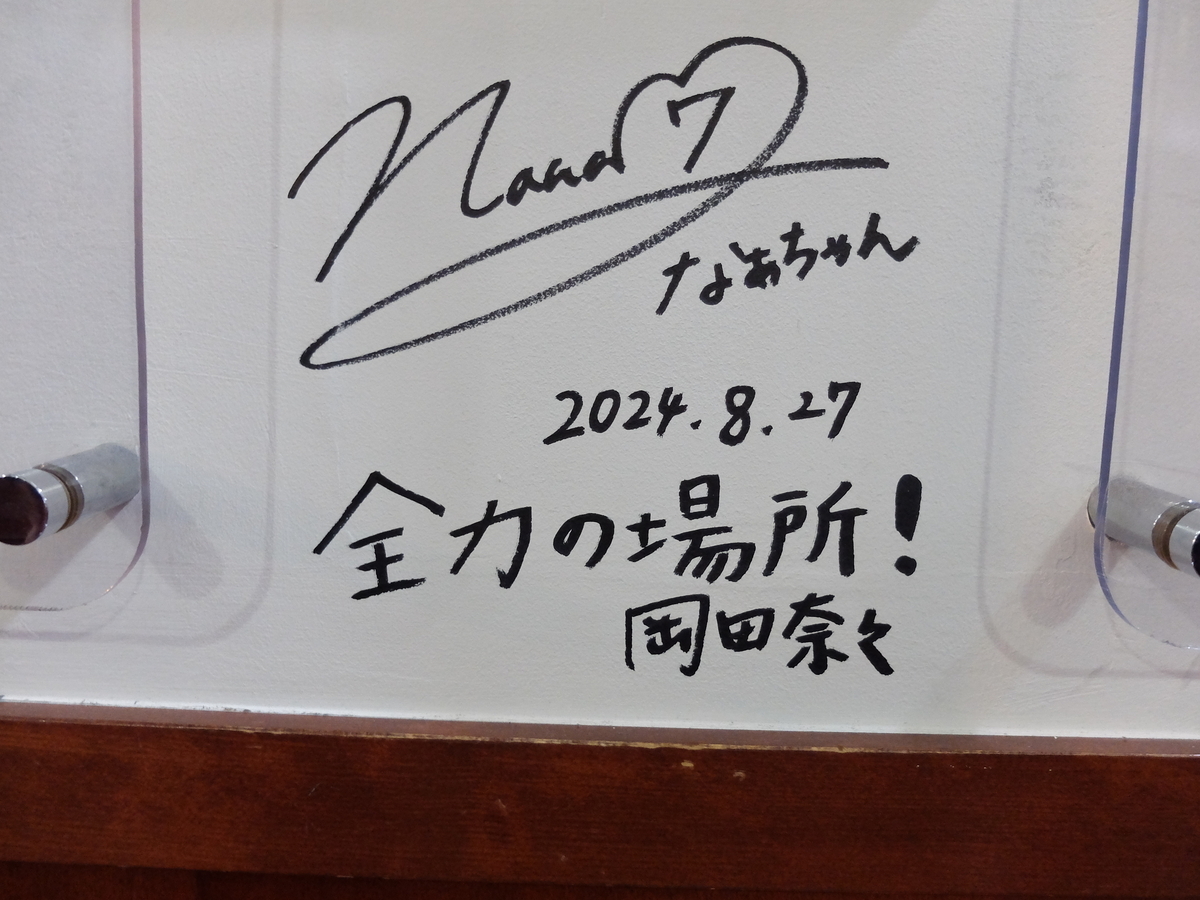 Naaa 7
なぁちゃん
2024.8.27
全力の場所!
岡田奈々